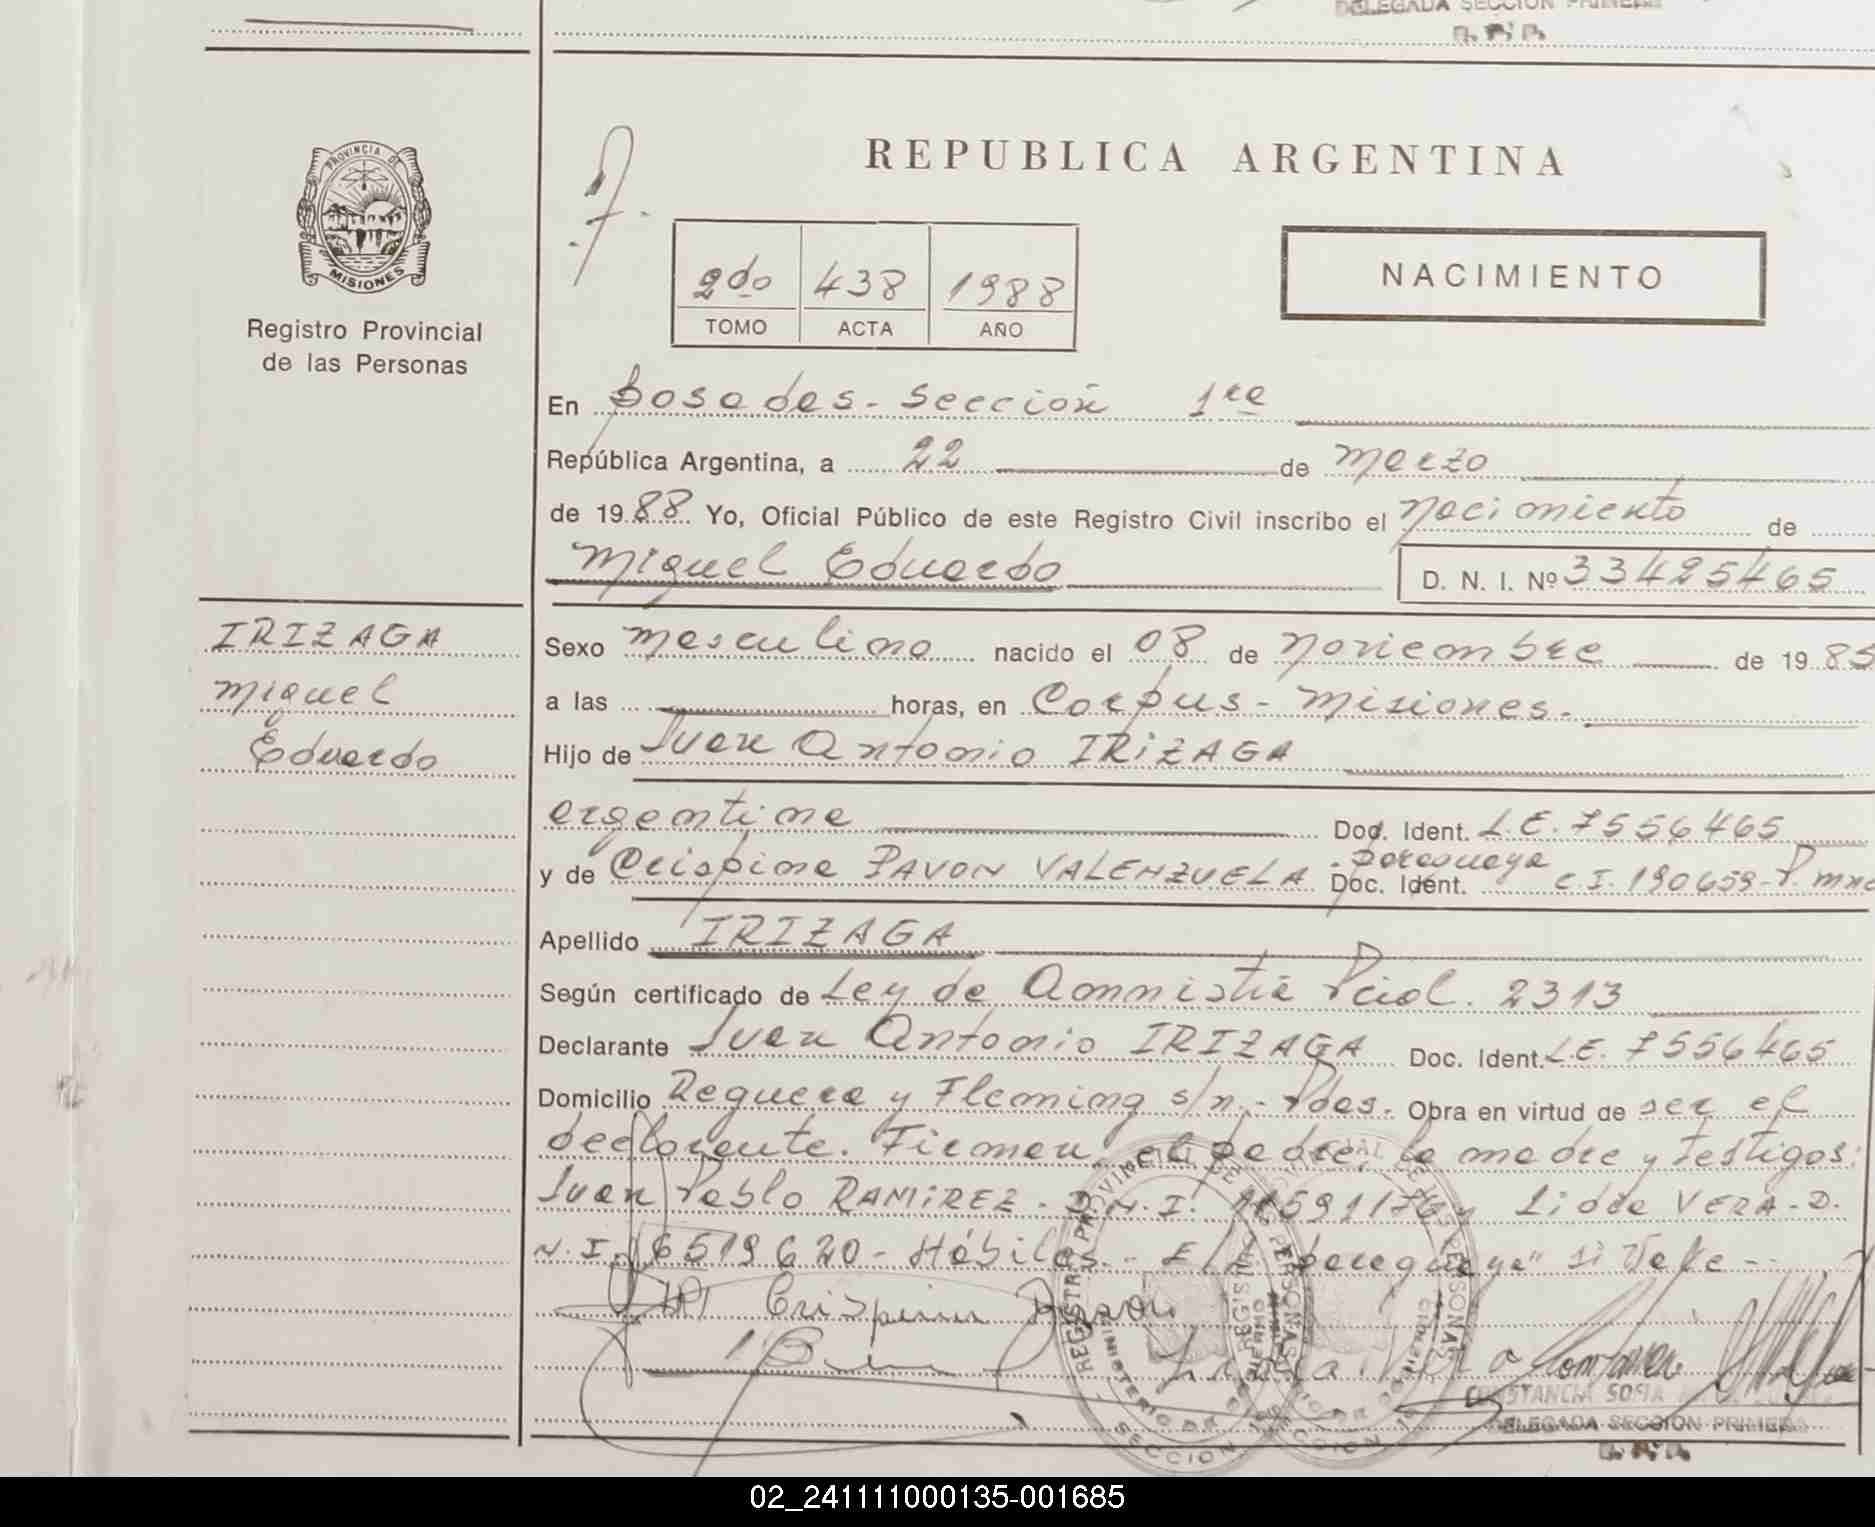 DELEGADA SECCION PRIMERA
R.P.P.
PROVINCIA DE
MISIONES
Registro Provincial
de las Personas
REPUBLICA ARGENTINA
2do 438 1988
TOMO ACTA AÑO
NACIMIENTO
En Posadas - Sección 1ra
República Argentina, a 22 de marzo
de 1988 Yo, Oficial Público de este Registro Civil inscribo el nacimiento de
Miguel Eduardo D. N. I. Nº 33425465
IRIZAGA
Miguel
Eduardo
Sexo masculino nacido el 08 de noviembre de 1985
a las horas, en Corpus - Misiones.
Hijo de Juan Antonio IRIZAGA
argentina Doc. Ident. L.E. 7556465
y de Crispina PAVON VALENZUELA - paraguaya Doc. Ident. C.I. 190659-P. mnes
Apellido IRIZAGA
Según certificado de Ley de Amnistia Pcial. 2313
Declarante Juan Antonio IRIZAGA Doc. Ident. L.E. 7556465
Domicilio Reguera y Fleming s/n - Pdas. Obra en virtud de ser el
declarante. Firman el padre, la madre y testigos:
Juan Pablo RAMIREZ - D.N.I. 11591176 y Lidia VERA - D.
N.I. 6519620 - Hábiles. - E/L "paraguaya" si Vale -
Crispina Pavon
CONSTANCIA SOFIA
DELEGADA SECCION PRIMERA
R.P.P.
02_241111000135-001685